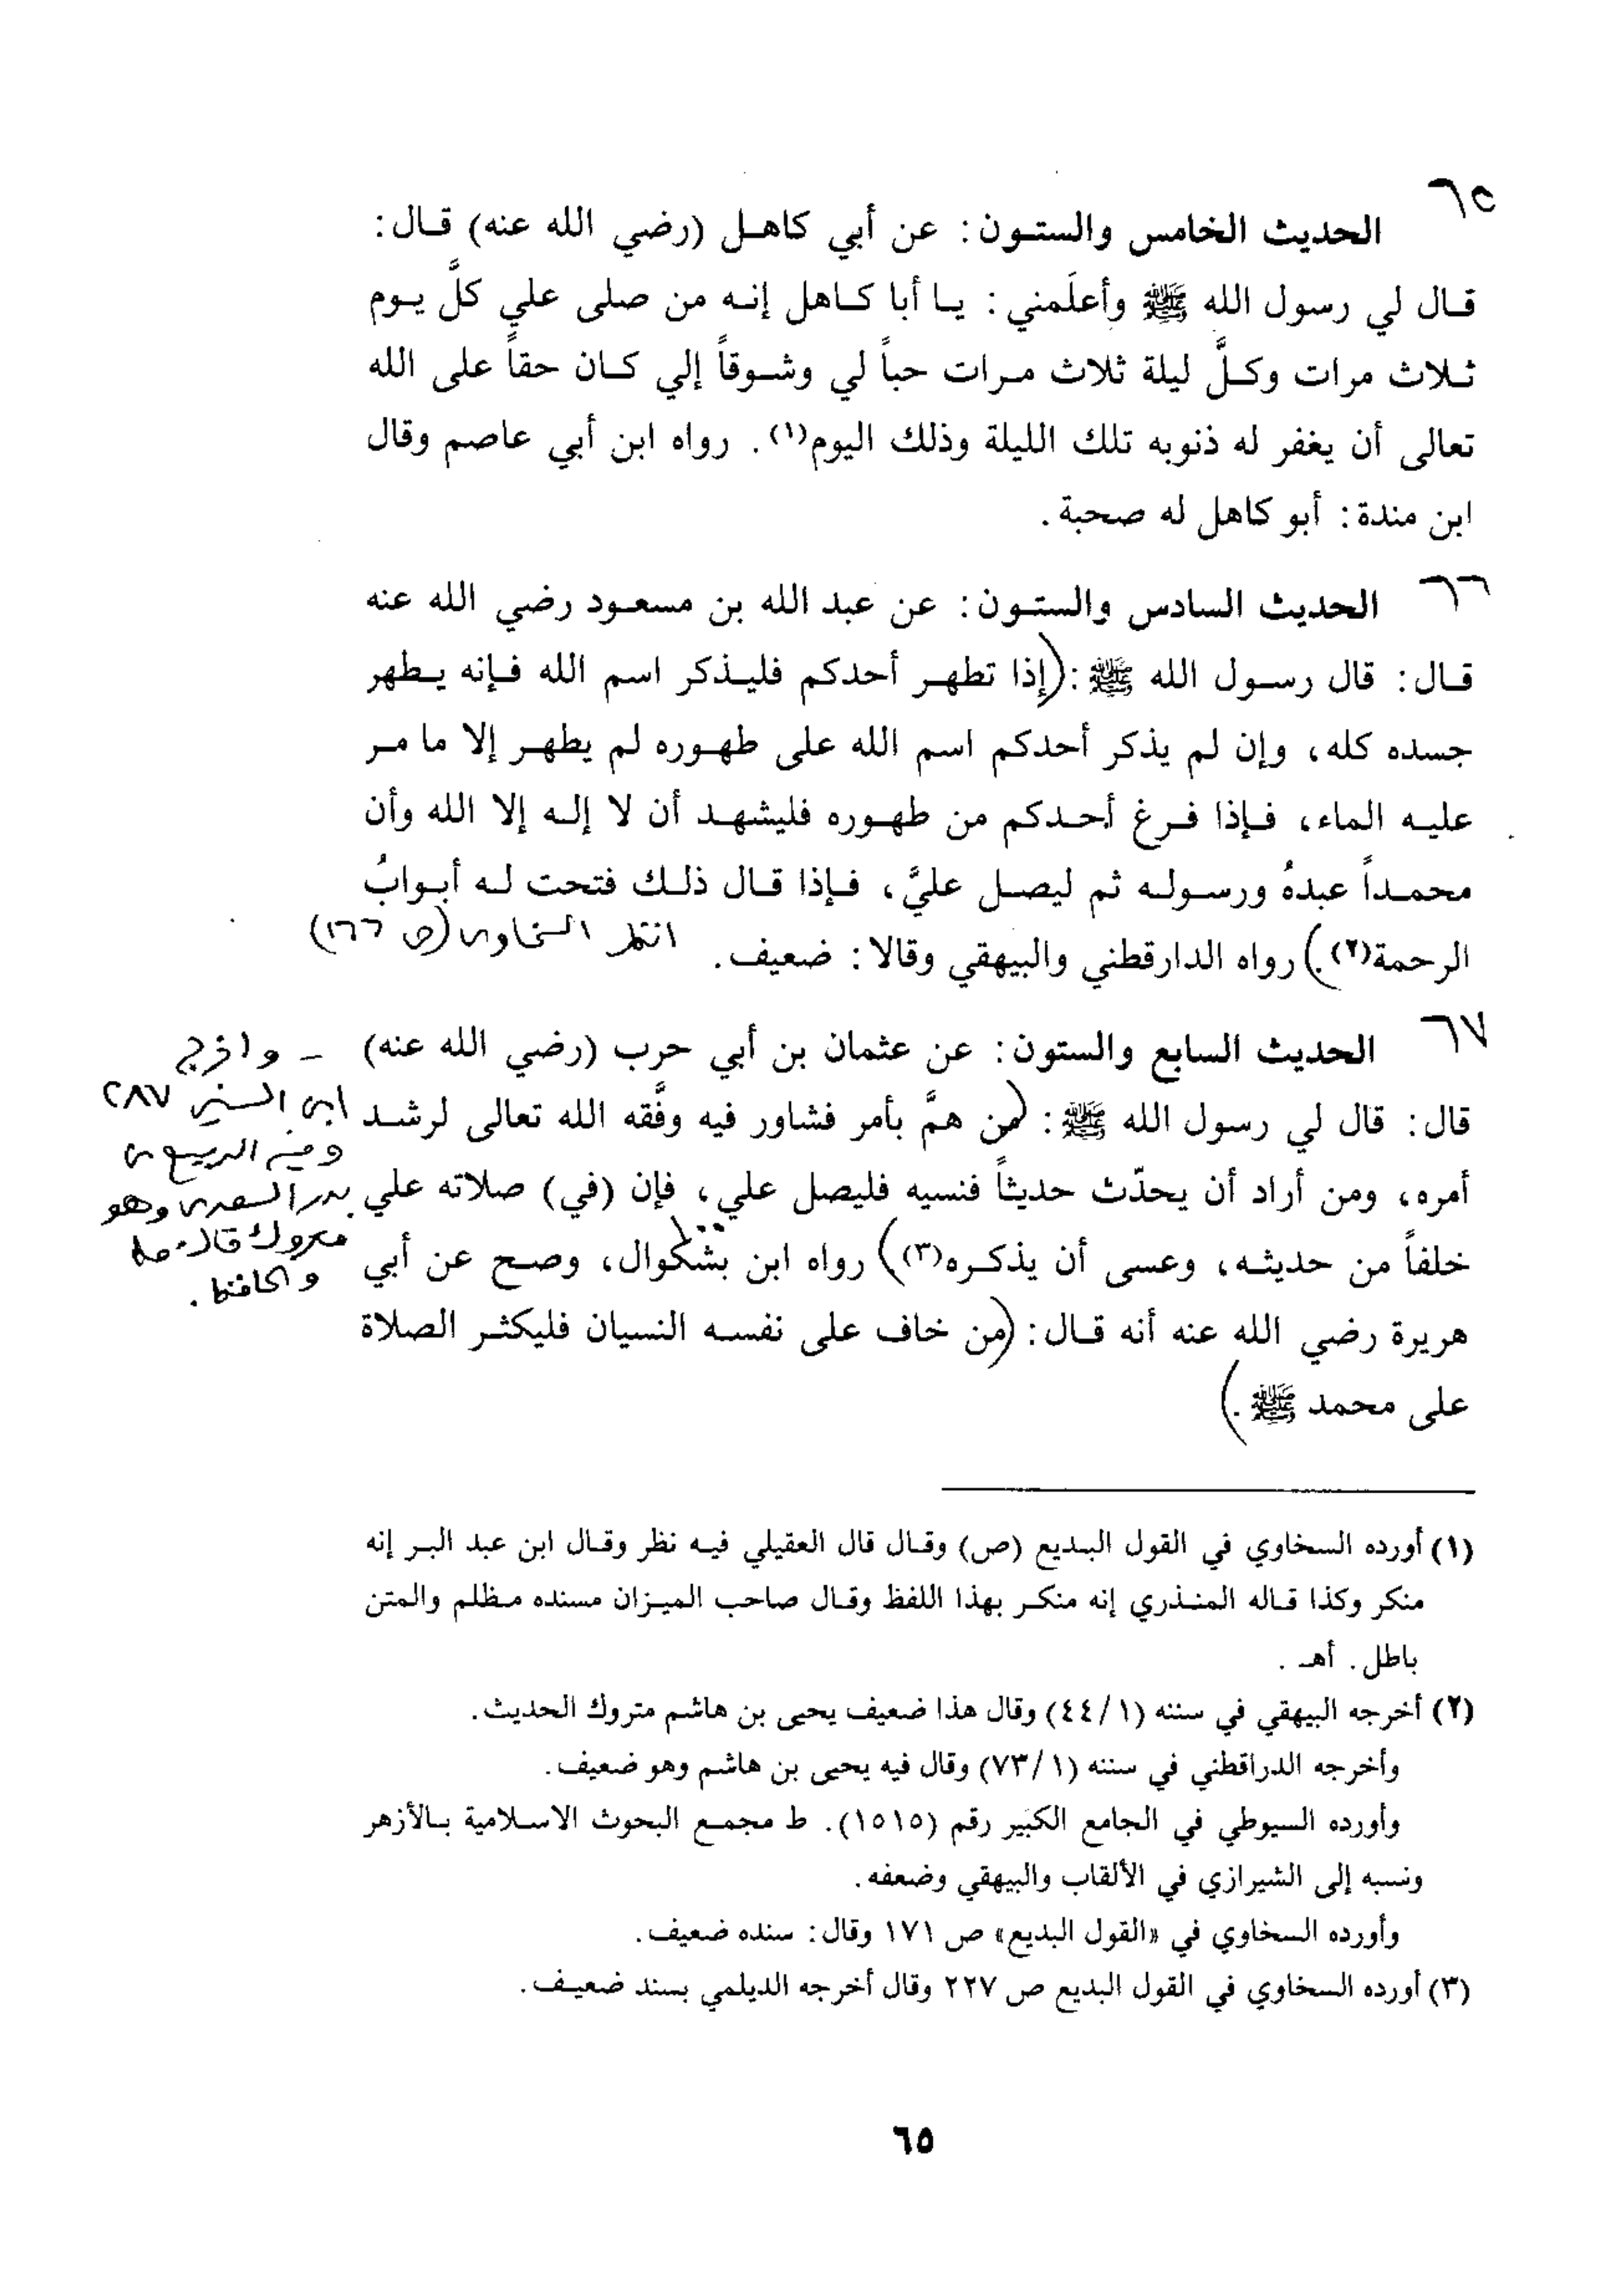 ٦٥
الحديث الخامس والستون: عن أبي كاهل (رضي الله عنه) قال:
قال لي رسول الله ﷺ وأعلَمني: يا أبا كاهل إنه من صلى علي كلَّ يوم
ثلاث مرات وكلَّ ليلة ثلاث مرات حباً لي وشوقاً إلي كان حقاً على الله
تعالى أن يغفر له ذنوبه تلك الليلة وذلك اليوم(١). رواه ابن أبي عاصم وقال
ابن مندة: أبو كاهل له صحبة.
٦٦
الحديث السادس والستون: عن عبد الله بن مسعود رضي الله عنه
قال: قال رسول الله ﷺ: (إذا تطهر أحدكم فليذكر اسم الله فإنه يطهر
جسده كله، وإن لم يذكر أحدكم اسم الله على طهوره لم يطهر إلا ما مر
عليه الماء، فإذا فرغ أحدكم من طهوره فليشهد أن لا إله إلا الله وأن
محمداً عبدهُ ورسوله ثم ليصل عليَّ، فإذا قال ذلك فتحت له أبوابُ
الرحمة(٢).) رواه الدارقطني والبيهقي وقالا: ضعيف.
انظر السخاوي (ص ١٦٦)
٦٧
الحديث السابع والستون: عن عثمان بن أبي حرب (رضي الله عنه)
قال: قال لي رسول الله ﷺ: (من همَّ بأمر فشاور فيه وفَّقه الله تعالى لرشد
أمره، ومن أراد أن يحدّث حديثاً فنسيه فليصل علي، فإن (في) صلاته علي
خلفاً من حديثه، وعسى أن يذكره(٣)) رواه ابن بشكوال، وصح عن أبي
هريرة رضي الله عنه أنه قال: (من خاف على نفسه النسيان فليكثر الصلاة
على محمد ﷺ.)
– واخرج
ابن السني ٢٨٧
وفيه الربيع بن
بدر السعدي وهو
متروك قاله
والحافظ.
(١) أورده السخاوي في القول البديع (ص) وقال قال العقيلي فيه نظر وقال ابن عبد البر إنه
منكر وكذا قاله المنذري إنه منكر بهذا اللفظ وقال صاحب الميزان مسنده مظلم والمتن
باطل. أهـ .
(٢) أخرجه البيهقي في سننه (٤٤/١) وقال هذا ضعيف يحيى بن هاشم متروك الحديث.
وأخرجه الدراقطني في سننه (٧٣/١) وقال فيه يحيى بن هاشم وهو ضعيف.
وأورده السيوطي في الجامع الكبير رقم (١٥١٥). ط مجمع البحوث الاسلامية بالأزهر
ونسبه إلى الشيرازي في الألقاب والبيهقي وضعفه.
وأورده السخاوي في «القول البديع» ص ١٧١ وقال: سنده ضعيف.
(٣) أورده السخاوي في القول البديع ص ٢٢٧ وقال أخرجه الديلمي بسند ضعيف.
٦٥